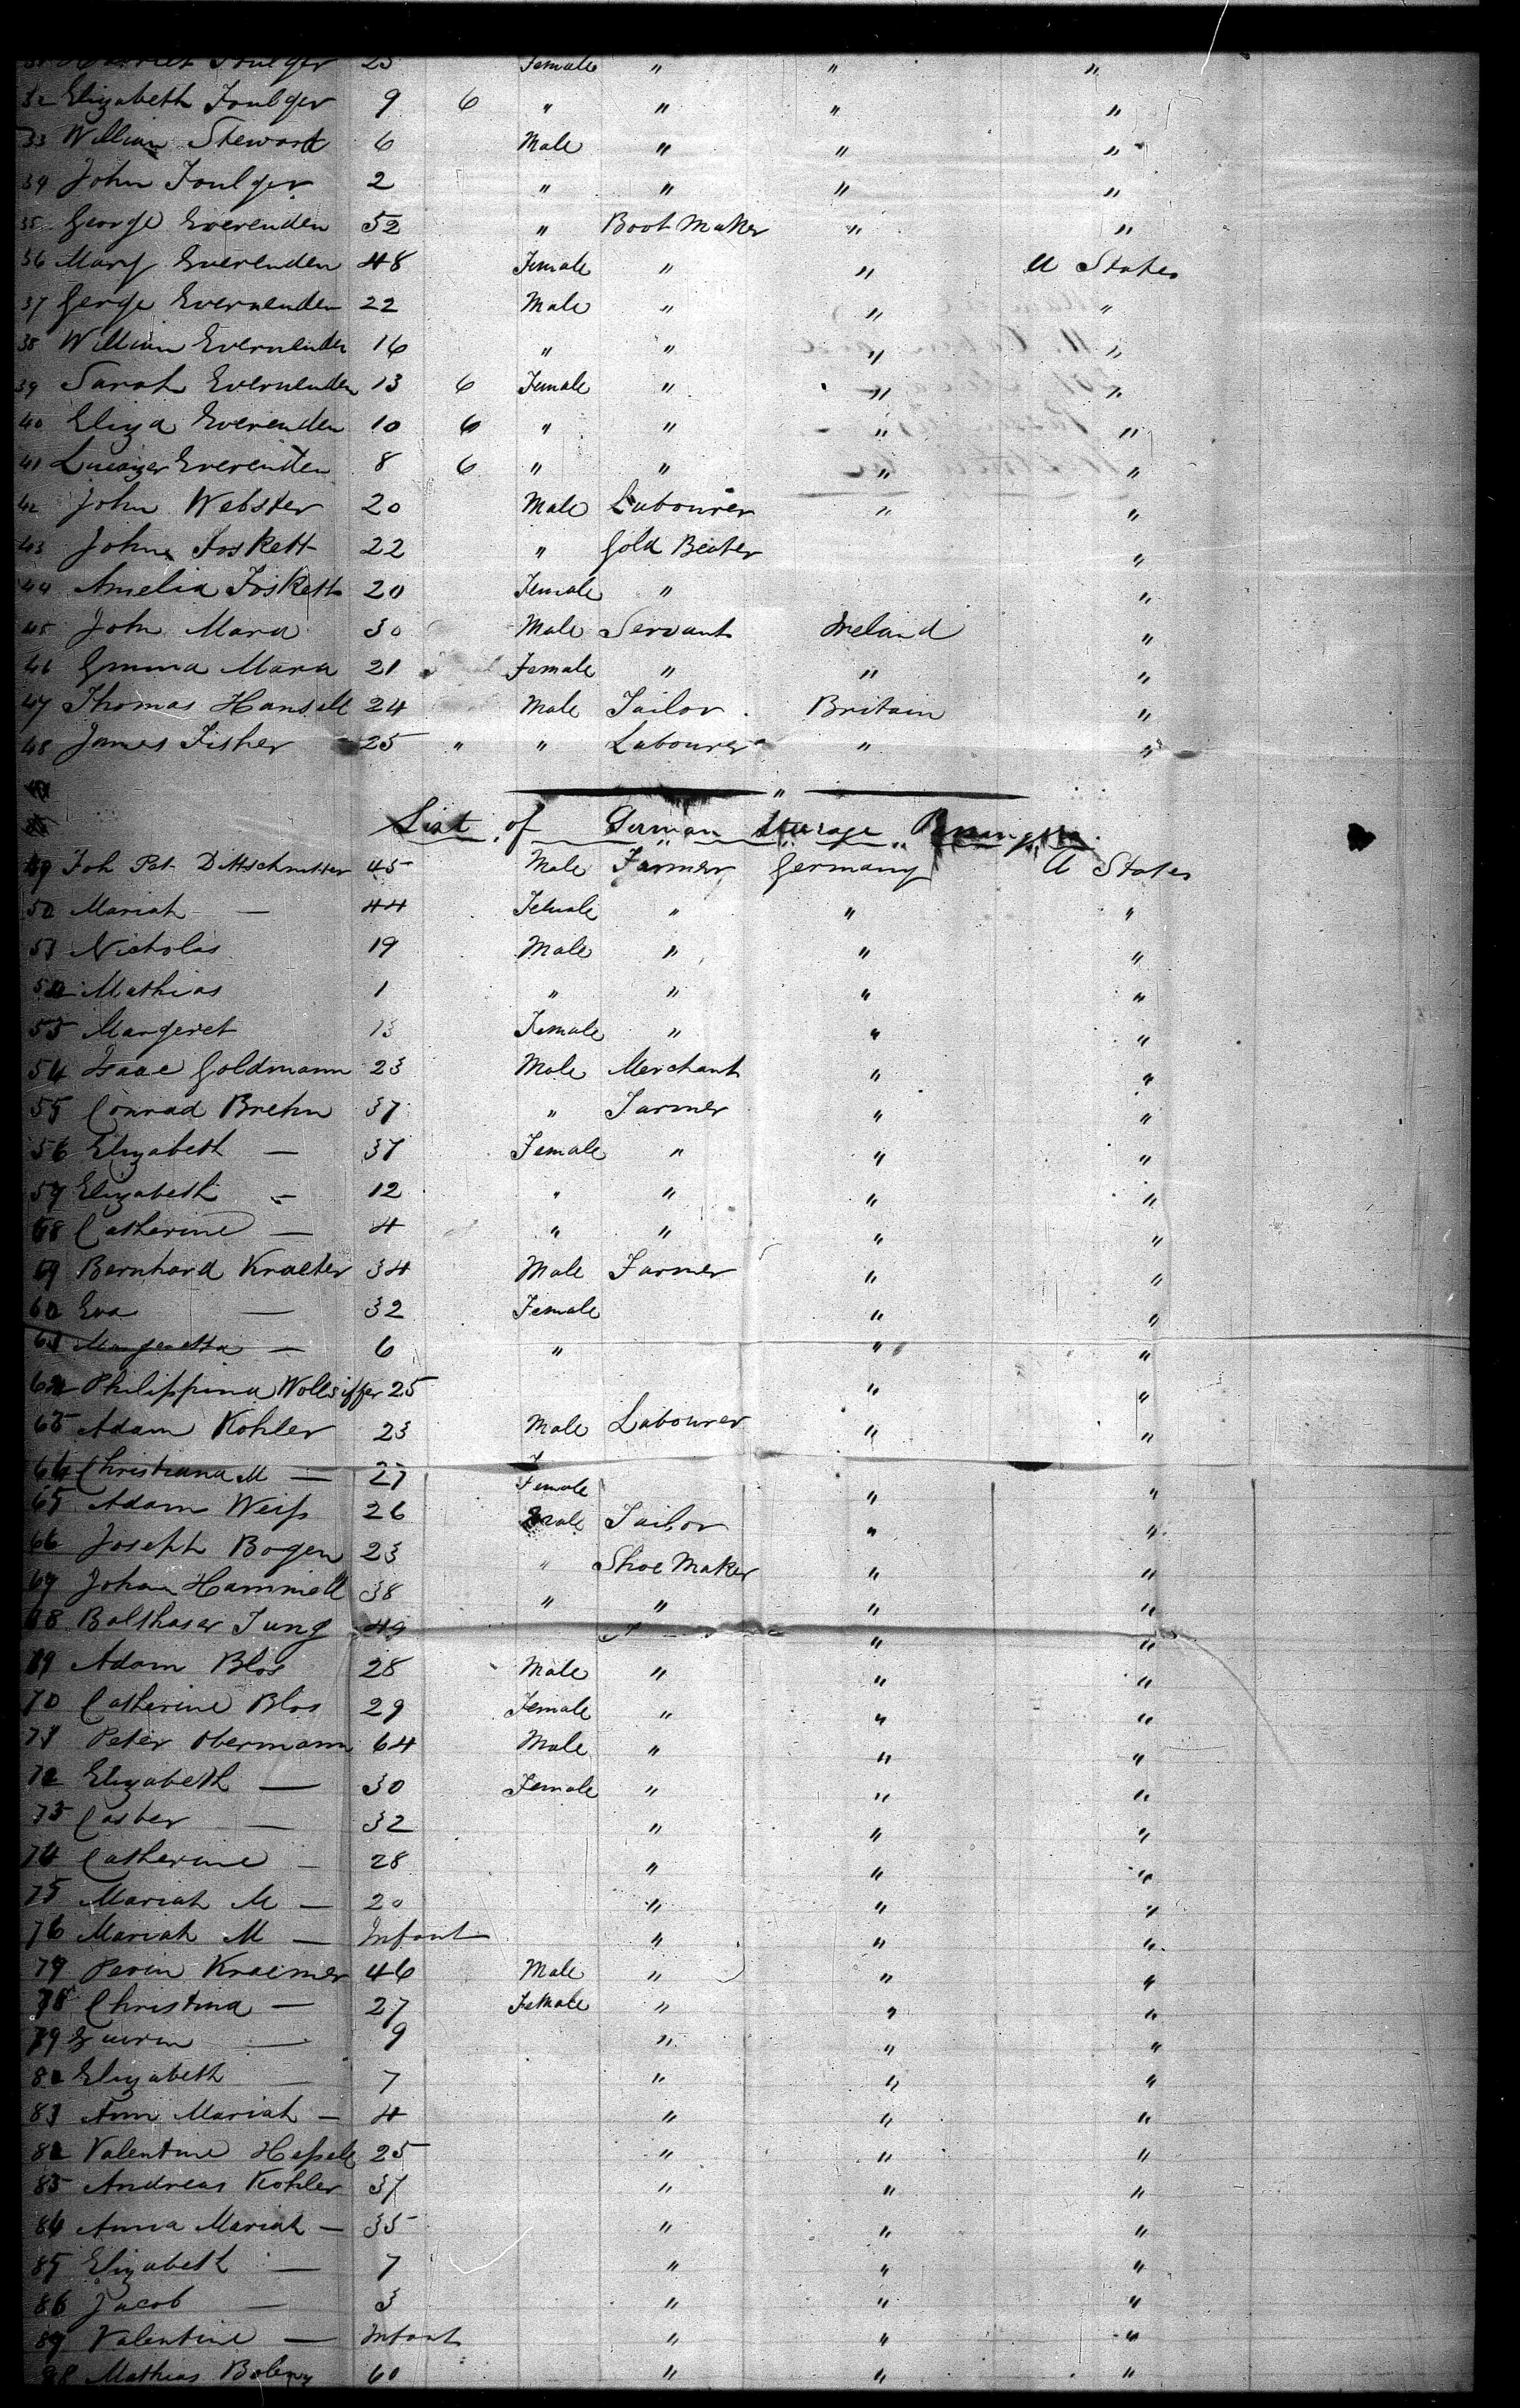 Foulger 25 Female " " "
32 Elizabeth Foulger 9 6 " " " "
33 William Steward 6 Male " " "
34 John Foulger 2 " " " "
35 George Everenden 52 " Boot Maker " "
36 Mary Everenden 48 Female " " U States
37 Gerge Evernenden 22 Male " " "
38 William Evernenden 16 " " " "
39 Sarah Evernenden 13 6 Female " " "
40 Eliza Everenden 10 6 " " " "
41 Everenden 8 6 " " " "
42 John Webster 20 Male Labourer " "
43 John Foskett 22 " Gold Beater "
44 Amelia Foskett 20 Female " "
45 John Mara 30 Male Servant Ireland "
46 Emma Mara 21 Female " " "
47 Thomas Hansell 24 Male Tailor Britain "
48 James Fisher 25 " " Labourer " "
List of German Steerage Passengers
49 Joh Pet 45 Male Farmer Germany U States
50 Mariah — 44 Female " " "
51 Nicholas 19 Male " " "
52 Mathias 1 " " " "
53 Margeret 13 Female " " "
54 Isaac Goldmann 23 Male Merchant " "
55 Conrad Brehm 37 " Farmer " "
56 Elizabeth — 37 Female " " "
57 Elizabeth — 12 " " " "
58 Catherine — 4 " " " "
59 Bernhard Kraeter 34 Male Farmer " "
60 Eva — 32 Female " "
61 Margeretta — 6 " " "
62 Philippina 25 " "
63 Adam Kohler 23 Male Labourer " "
64 Christiana M — 27 Female " "
65 Adam Weiſs 26 Male Tailor " "
66 Joseph Bogen 23 " Shoe Maker " "
67 Johan Hammell 38 " " " "
68 Balthaser Jung 49 " "
69 Adam Blos 28 Male " " "
70 Catherine Blos 29 Female " " "
71 Peter Obermann 64 Male " " "
72 Elizabeth — 30 Female " " "
73 Casber — 32 " " "
74 Catherine — 28 " " "
75 Mariah M — 20 " " "
76 Mariah M — Infant " " "
77 Kraemer 46 Male " " "
78 Christina — 27 Female " " "
79 — 9 " " "
80 Elizabeth — 7 " " "
81 Ann Mariah — 4 " " "
82 Valentine Heſsell 25 " " "
83 Andreas Kohler 37 " " "
84 Anna Mariah — 35 " " "
85 Elizabeth — 7 " " "
86 Jacob — 3 " " "
87 Valentine — Infant " " "
88 Mathias 60 " " "